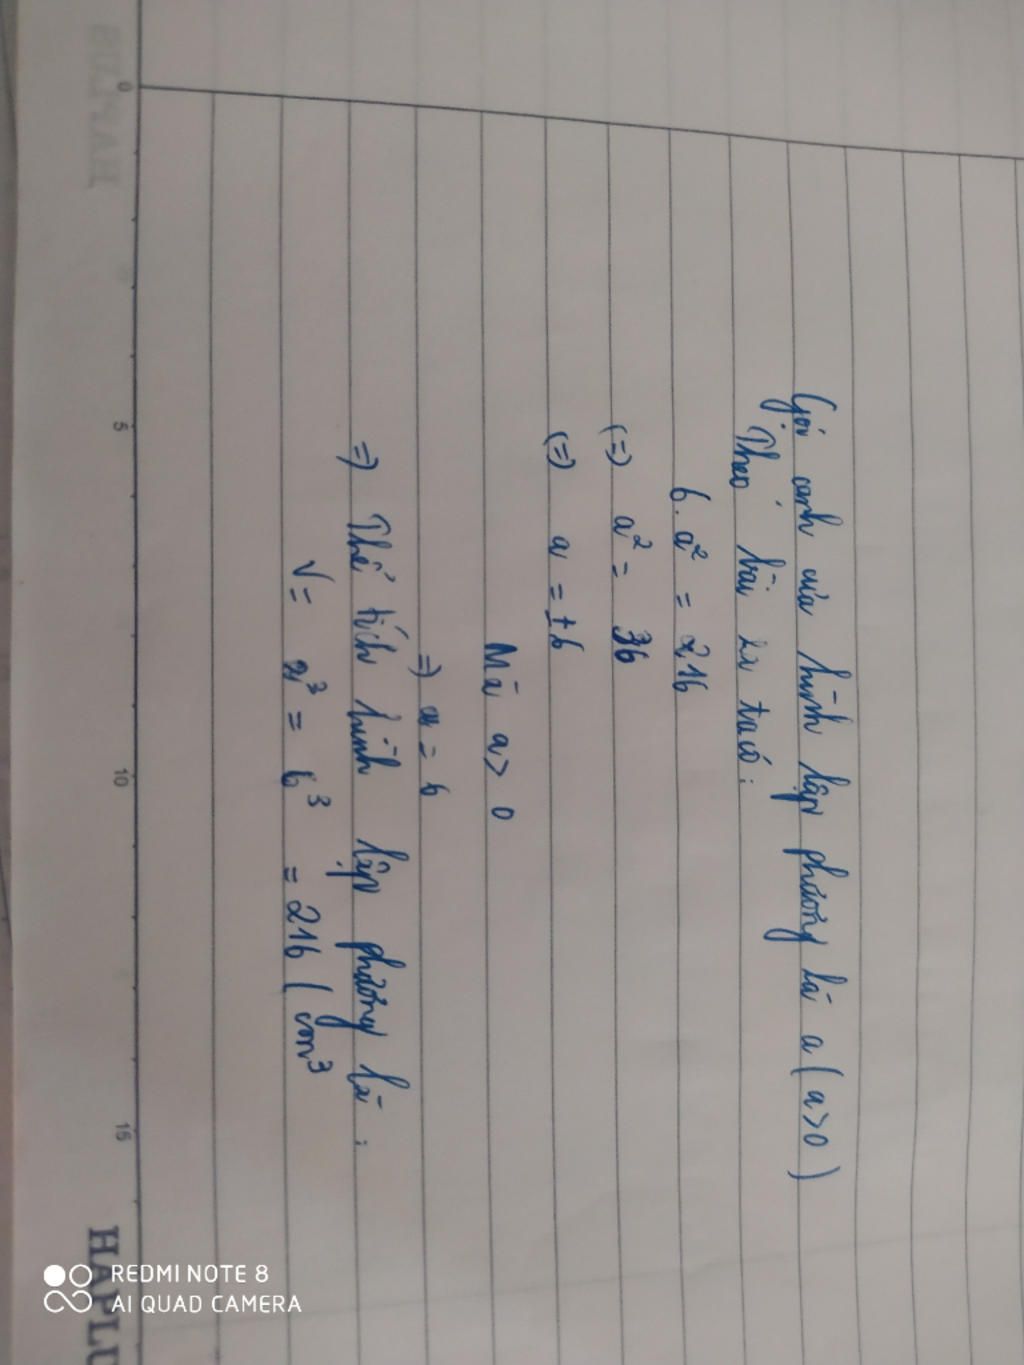 Gọi cạnh của hình lập phương là a (a>0)
Theo bài ra ta có:
6.a² = 216
(=) a² = 36
(=) a = ±6
Mà a > 0
=) a = 6
=) Thể tích hình lập phương là:
V = a³ = 6³ = 216 (cm³
0
5
10
15
HAPLU
REDMI NOTE 8
AI QUAD CAMERA